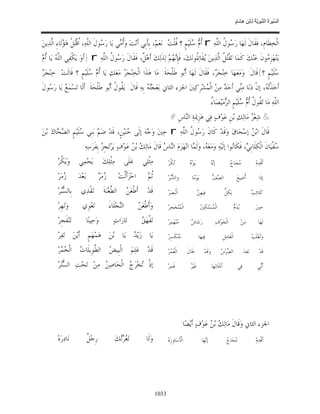 السيرة النبوية لابن هشام
الْخِطَامِ، فَقَالَ لَهَا رَسُولُ اللّهِ أُمّ سُلَيْمٍ ؟ قُلْتُ نَعَمْ، بِأَبِي أَنْتَ وَأُمّي يَا رَسُولَ اللّهِ، اُقْتُلْ هَؤُلَاءِ الّذِينَ
يَنْهَزِمُونَ عَنْك كَمَا تَقْتُلُ الّذِينَ يُقَاتِلُونَك، فَإِنّهُمْ لِذَلِكَ أَهْلٌ، فَقَالَ رَسُولُ اللّهِ أَوَ يَكْفِي اللّهُ يَا أُمّ
سُلَيْمٍ ؟ قَالَ وَمَعَهَا خِنْجَرٌ، فَقَالَ لَهَا أَبُو طَلْحَةَ مَا هَذَا الْخِنْجَرُ مَعَك يَا أُمّ سُلَيْمٍ ؟ قَالَتْ خِنْجَرٌ
أَخَذْتُهُ، إنْ دَنَا مِنّي أَحَدٌ مِنْ الْمُشْرِكِينَ الجزء الثاني بَعَجْتُهُ بِهِ قَالَ يَقُولُ أَبُو طَلْحَةَ أَلَا تَسْمَعُ يَا رَسُولَ
اللّهِ مَا تَقُولُ أُمّ سُلَيْمٍ الرّمَيْصَاءُ
شِعْرُ مَالِكِ بْنِ عَوْفٍ فِي هَزِيمَةِ النّاسِ
قَالَ ابْنُ إسْحَاقَ وَقَدْ كَانَ رَسُولُ اللّهِ حِينَ وَجّهَ إلَى حُنَيْنٍ، قَدْ ضَمّ بَنِي سُلَيْمٍ الضّحّاكَ بْنَ
سُفْيَانَ الْكِلَابِيّ، فَكَانُوا إلَيْهِ وَمَعَهُ، وَلَمّا انْهَزَمَ النّاسُ قَالَ مَالِكُ بْنُ عَوْفٍ يَرْتَجِزُ بِفَرَسِهِ
أَقْدِمْ مُحَاجُ إنّهُ يَوْمٌ نُكُرْ مِثْلِي عَلَى مِثْلِك يَحْمِي وَيَكُرّ
إذَا أُضِيعَ الصّفّ يَوْمًا وَالدّبُرْ ثُمّ احْزَأَلّتْ زُمَرٌ بَعْدَ زُمَرْ
كَتَائِبُ يَكِلّ فِيهِنّ الْبَصَرْ قَدْ أَطْعَنُ الطّعْنَةَ تَقْذِي بِالسّبُرْ
حِينَ يُذَمّ الْمُسْتَكِينُ الْمُنْجَحِرْ وَأَطْعُنُ النّجْلَاءَ تَعْوِي وَتَهِرّ
لَهَا مِنْ الْجَوْفِ رَشَاشٌ مُنْهَمِرْ تَفْهَقُ تَارَاتٍ وَحِينًا تَنْفَجِرْ
وَثَعْلَبُ الْعَامِلِ فِيهَا مُنْكَسِرْ يَا زَيْدُ يَا بْنَ هَمْهَمٍ أَيْنَ تَفِرّ
قَدْ نَفِدَ الضّرْسُ وَقَدْ طَالَ الْعُمُرْ قَدْ عَلِمَ الْبِيضُ الطّوِيلَاتُ الْخُمُرْ
أَنّي فِي أَمْثَالِهَا غَيْرُ غَمِرْ إذْ تُخْرَجُ الْحَاصِنُ مِنْ تَحْتِ السّتُرْ
الجزء الثاني وَقَالَ مَالِكُ بْنُ عَوْفٍ أَيْضًا
أَقْدِمْ مُحَاجُ إنّهَا الْأَسَاوِرَهْ وَلَا تَغُرّنّكَ رِجْلٌ نَادِرَهْ
1033